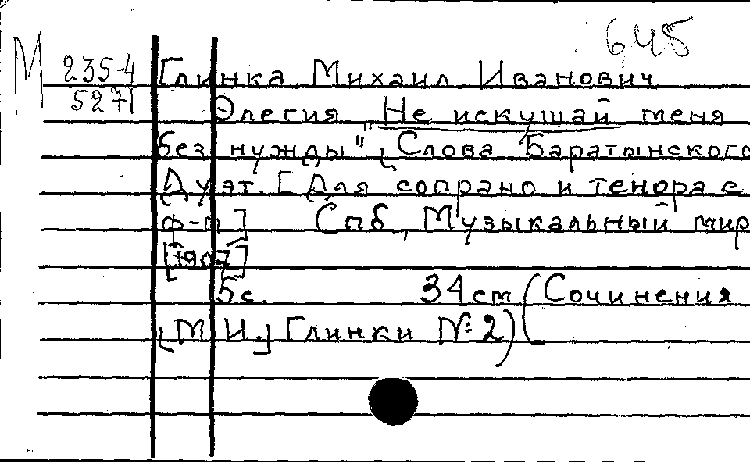 645
М 235-4
5271
Глинка Михаил Иванович
Элегия „Не искушай меня
без нужды" [Слова Баратынского
Дуэт. [Для сопрано и тенора с
ф-п] Спб, Музыкальный мир
[1907]
5с. 34 cm (Сочинения
[М. И.] Глинки № 2)